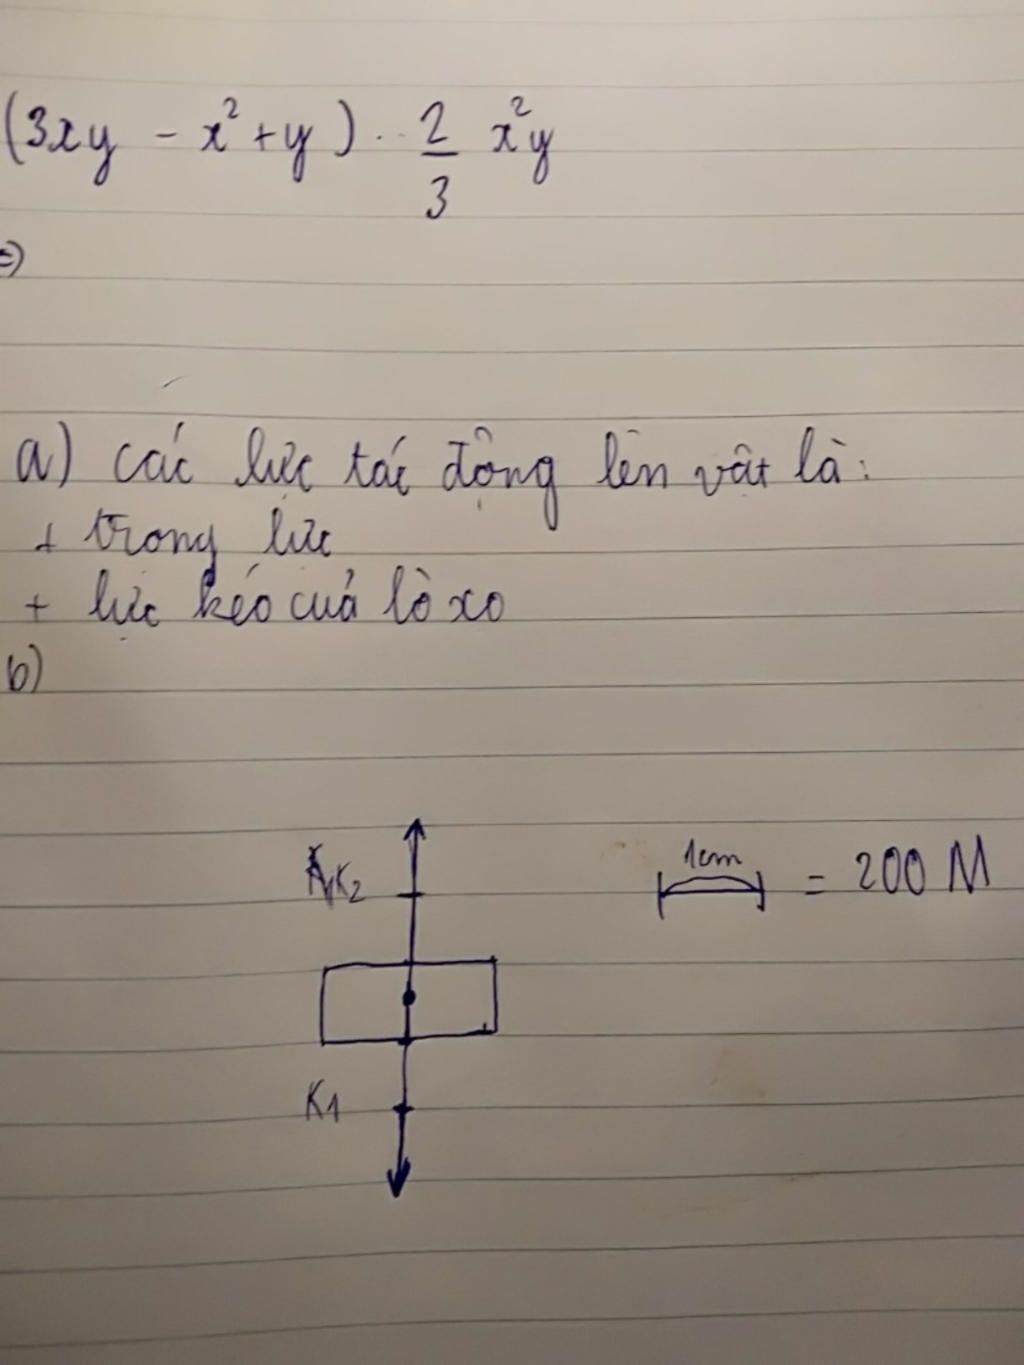 (3xy - x² + y) . 2/3 x²y
=)
a) các lực tác động lên vật là:
+ trong lực
+ lực kéo của lò xo
b)
K2
1cm = 200 M
K1